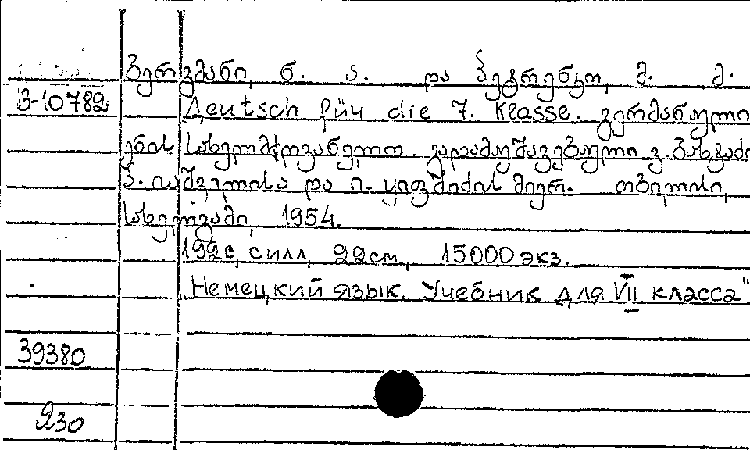 ბერგმანი, ნ. ა. და პეტრენკო, მ. მ.
B-10782
Deutsch für die 7. Klasse. გერმანული
ენის სახელმძღვანელო. გადამუშავებული
და ი. ყიფშიძის მიერ. თბილისი,
სახელგამი, 1954.
192 с. с илл., 22 см, 15000 экз.
"Немецкий язык. Учебник для VII класса"
39380
230